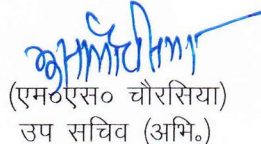 (एम०एस० चौरसिया)
उप सचिव (अभि०)